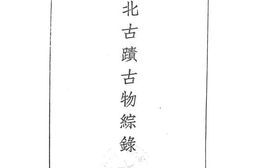 北古蹟古物綜錄